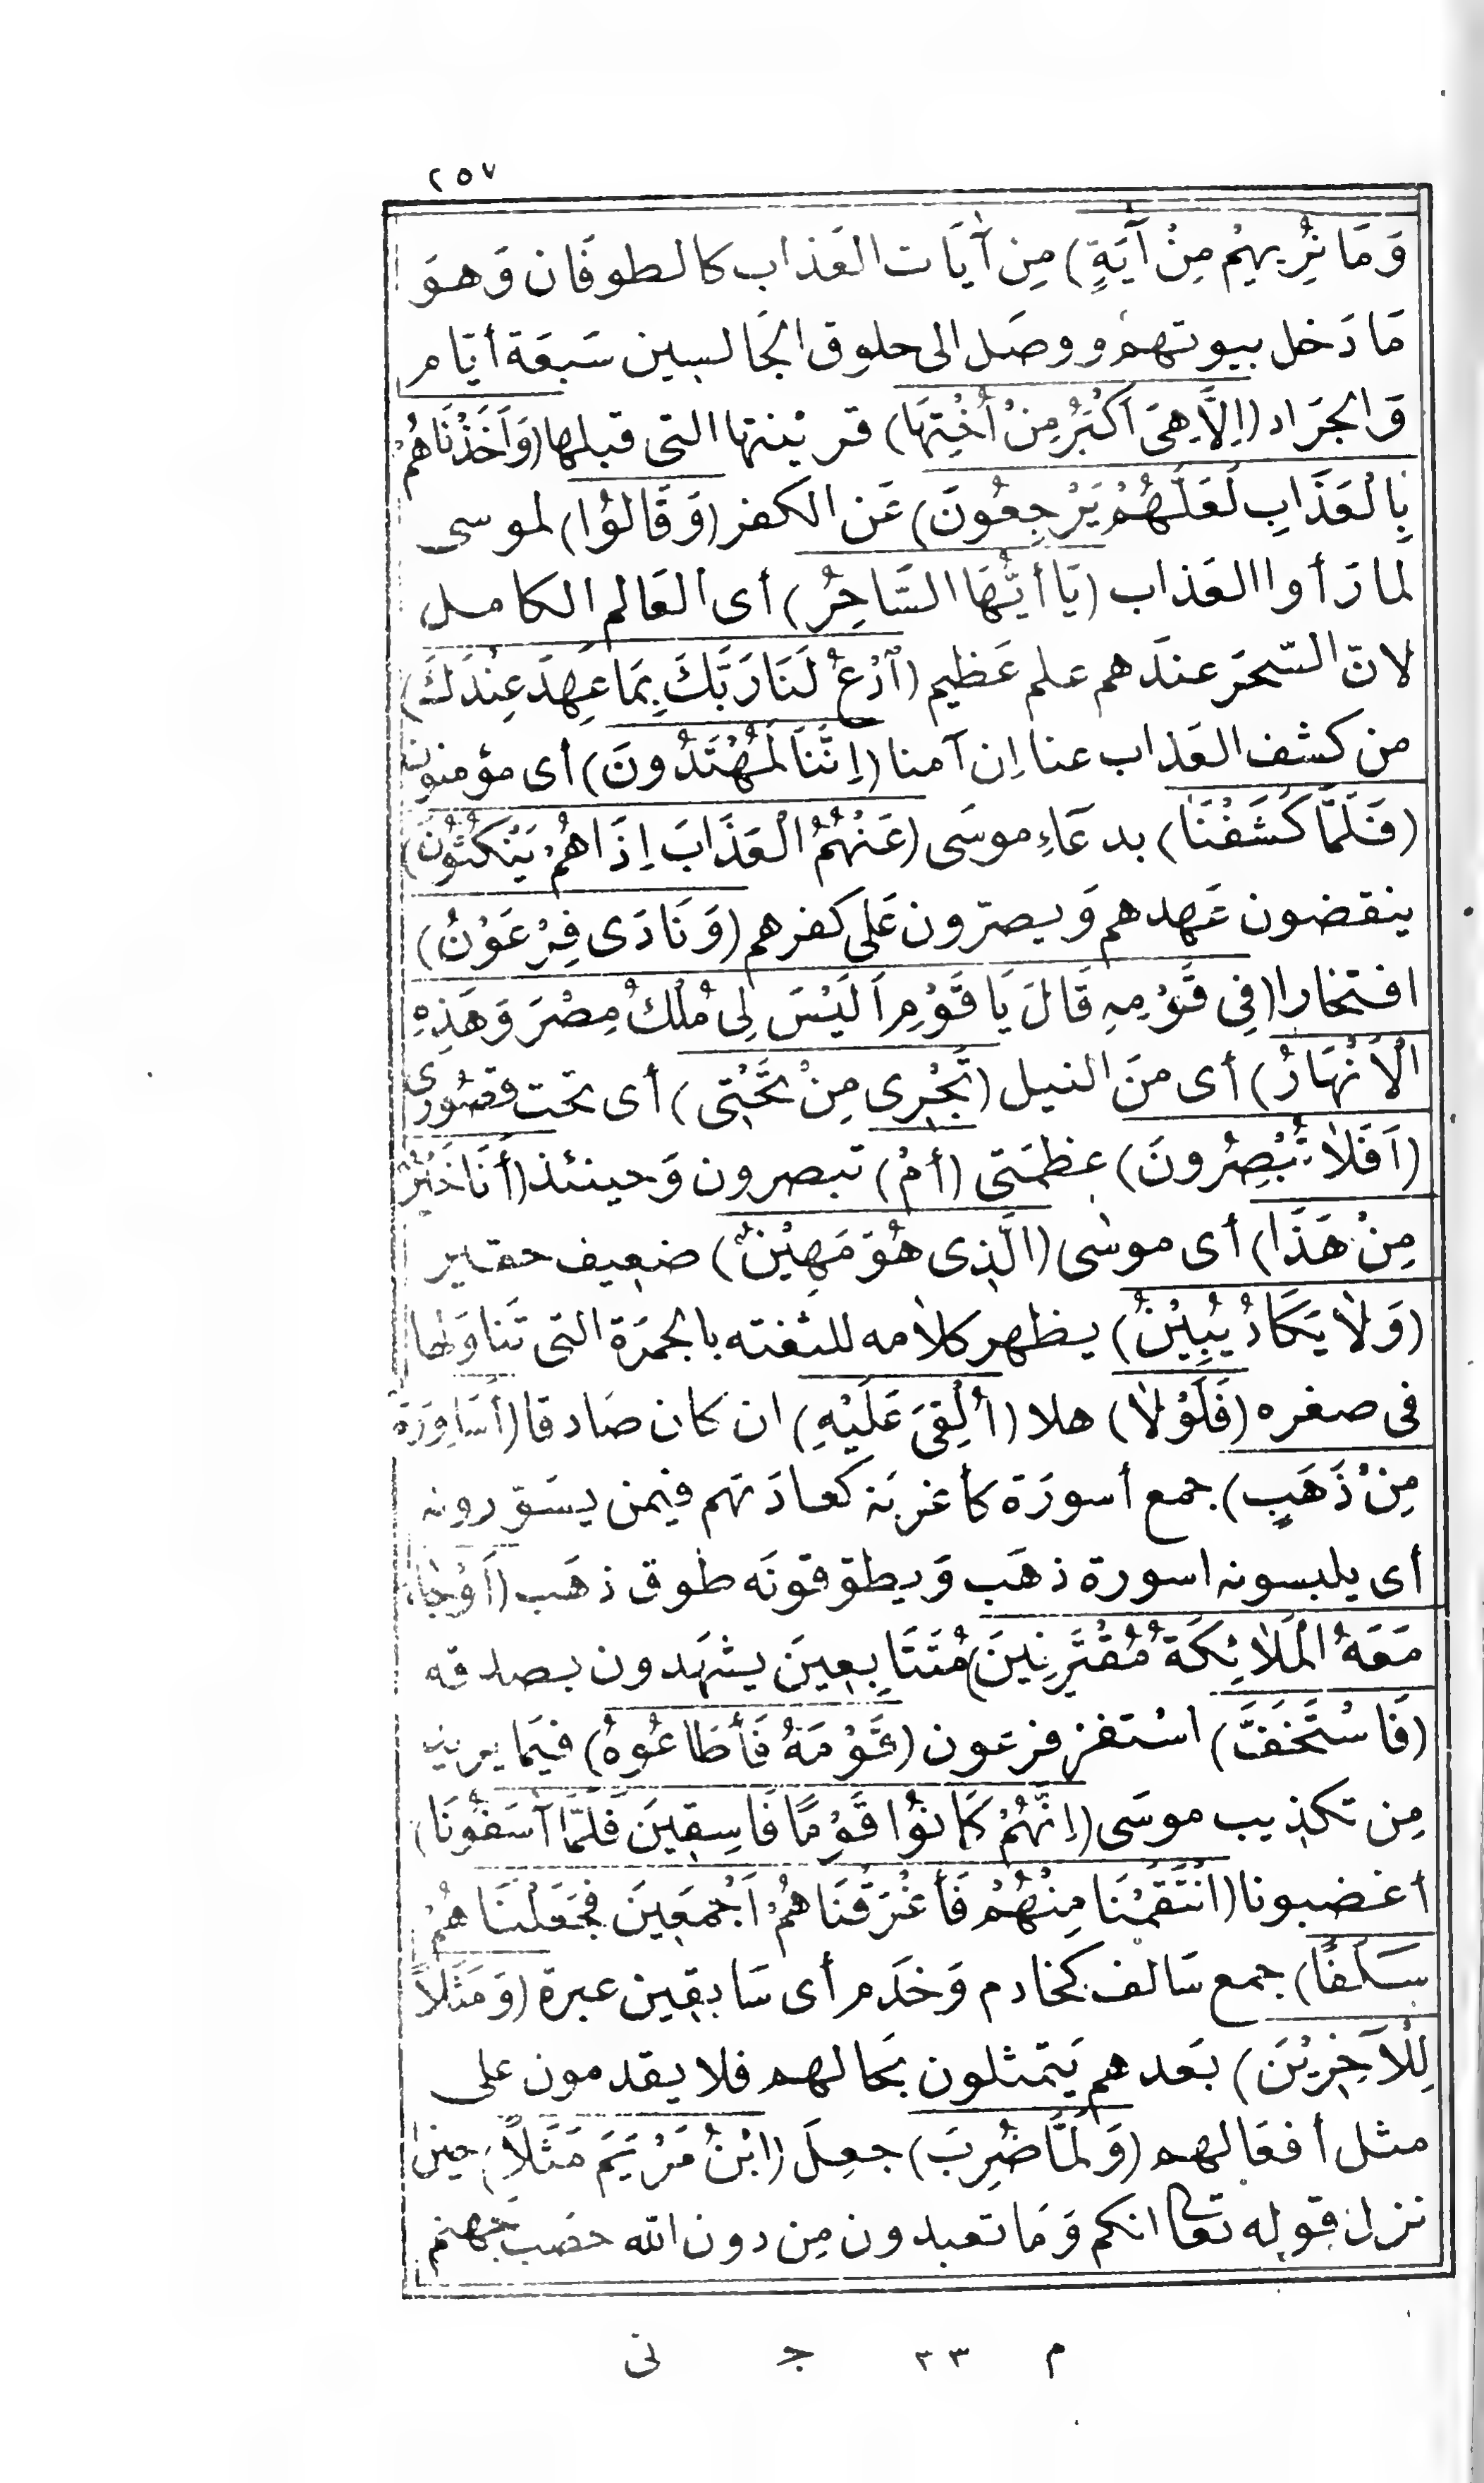 ٢٥٧
وَمَا نُرِيهِمْ مِنْ آيَةٍ) مِن آيَات العَذاب كالطوفَان وَهوَ
مَا دَخل بيوتهم ووصَل الى حلوق الجَالسين سَبعَة أيّام
وَالجَرَاد (اِلَّا هِىَ اَكْبَرُ مِنْ اُخْتِهَا) قرينتها التى قبلها (وَاَخَذْنَاهُمْ
بِالْعَذَابِ لَعَلَّهُمْ يَرْجِعُونَ) عَن الكفر (وَقَالُوْا) لموسى
لما رَأوا العَذاب (يَا أَيُّهَا السَّاحِرُ) أى العَالم الكامل
لانّ السّحرَ عندَهم علم عَظيم (اُدْعُ لَنَا رَبَّكَ بِمَا عَهِدَ عِنْدَكَ)
من كشف العَذاب عنا اِن آمنا (اِنَّنَا لَمُهْتَدُونَ) أى مؤمنون
(فَلَمَّا كَشَفْنَا) بدعَاءِ موسَى (عَنْهُمُ الْعَذَابَ اِذَا هُمْ يَنْكُثُونَ)
ينقضون عَهدهم وَيصرّون عَلى كفرهم (وَنَادَى فِرْعَوْنُ)
افتخارا (فِى قَوْمِهِ قَالَ يَا قَوْمِ اَلَيْسَ لِى مُلْكُ مِصْرَ وَهَذِهِ
الْاَنْهَارُ) أى منَ النيل (تَجْرِى مِنْ تَحْتِى) أى تحت قصُورى
(اَفَلَا تُبْصِرُونَ) عظمَتى (أَمْ) تبصرون وَحينئذ (أَنَا خَيْرٌ
مِنْ هَذَا) أى موسٰى (الَّذِى هُوَ مَهِيْنٌ) ضعيف حقير
(وَلَا يَكَادُ يُبِيْنُ) يظهر كلامه للثغته بالجمرَة التى تَناوَلها
فى صغره (فَلَوْلَا) هلا (اُلْقِىَ عَلَيْهِ) ان كان صَادقا (أَسَاوِرَة
مِنْ ذَهَبٍ) جمع أسورَة كأغربَة كعادَتهم فيمن يسَوّرونه
أى يلبسونه اسورة ذهَب وَيطوّقونَه طوق ذهَب (اَوْ جَاءَ
مَعَهُ الْمَلَائِكَةُ مُقْتَرِنِينَ) مُتَتَابِعِينَ يشهَدون بصدقه
(فَاسْتَخَفَّ) استفز فرعَون (قَوْمَهُ فَأَطَاعُوهُ) فيمَا يريد
مِن تكذيب موسَى (اِنَّهُمْ كَانُوْا قَوْمًا فَاسِقِينَ فَلَمَّا آسَفُونَا)
أغضبونا (انْتَقَمْنَا مِنْهُمْ فَأَغْرَقْنَاهُمْ اَجْمَعِينَ فَجَعَلْنَاهُمْ
سَلَفًا) جمع سَالف كخادم وَخدَم أى سَابقين عبرة (وَمَثَلًا
لِلْآخِرِيْنَ) بَعدهم يَتمثلون بحَالهم فلا يقدمون على
مثل أفعَالهم (وَلَمَّا ضُرِبَ) جعِلَ (ابْنُ مَرْيَمَ مَثَلًا) حين
نزل قوله تعالى انكم وَمَا تعبدون مِن دون الله حصَب جَهنم
م ٣٣ ج نى